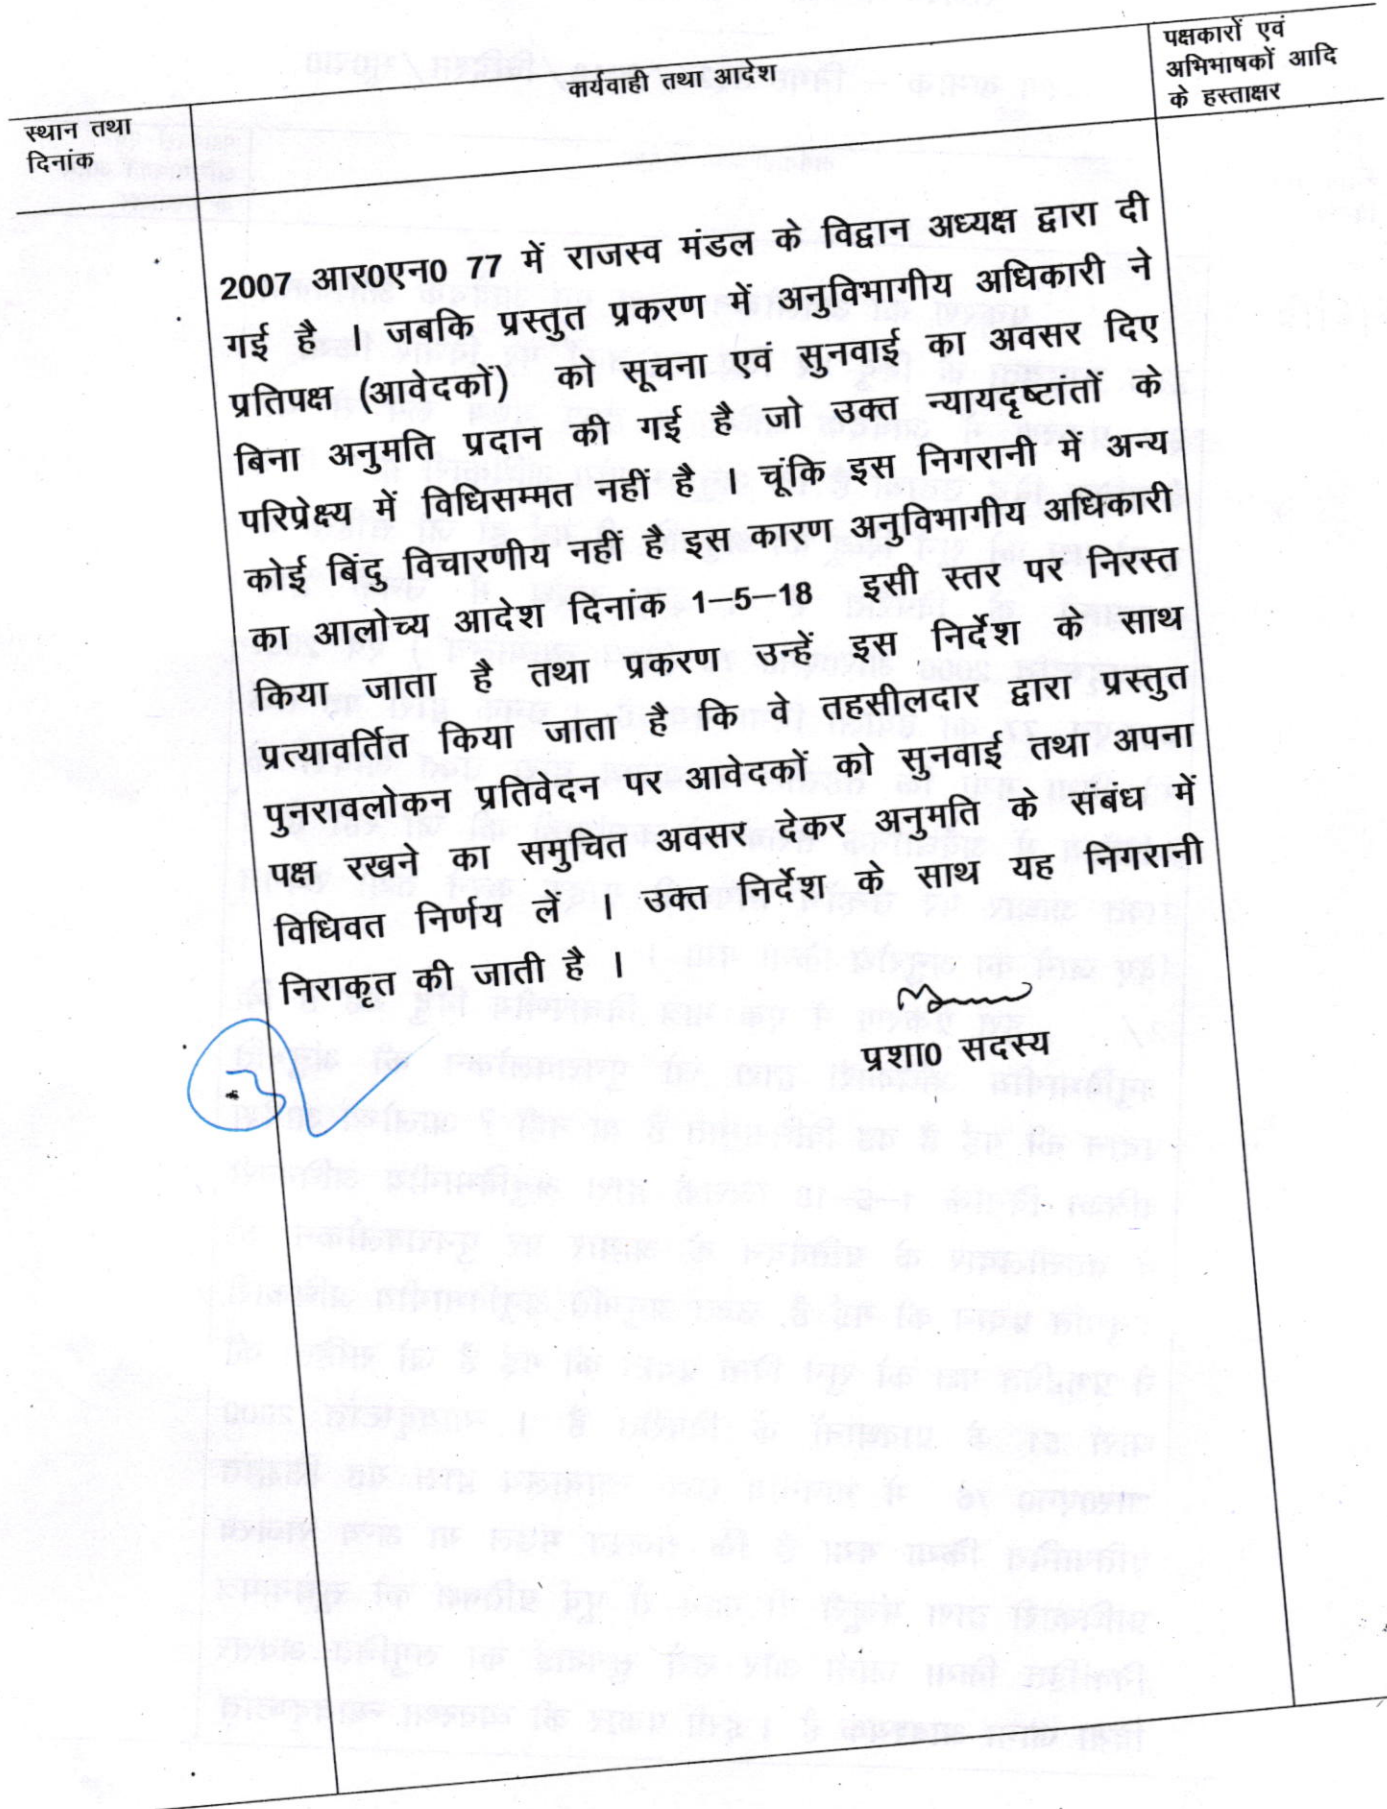 स्थान तथा
दिनांक
कार्यवाही तथा आदेश
पक्षकारों एवं
अभिभाषकों आदि
के हस्ताक्षर
2007 आर0एन0 77 में राजस्व मंडल के विद्वान अध्यक्ष द्वारा दी
गई है । जबकि प्रस्तुत प्रकरण में अनुविभागीय अधिकारी ने
प्रतिपक्ष (आवेदकों) को सूचना एवं सुनवाई का अवसर दिए
बिना अनुमति प्रदान की गई है जो उक्त न्यायदृष्टांतों के
परिप्रेक्ष्य में विधिसम्मत नहीं है । चूंकि इस निगरानी में अन्य
कोई बिंदु विचारणीय नहीं है इस कारण अनुविभागीय अधिकारी
का आलोच्य आदेश दिनांक 1–5–18 इसी स्तर पर निरस्त
किया जाता है तथा प्रकरण उन्हें इस निर्देश के साथ
प्रत्यावर्तित किया जाता है कि वे तहसीलदार द्वारा प्रस्तुत
पुनरावलोकन प्रतिवेदन पर आवेदकों को सुनवाई तथा अपना
पक्ष रखने का समुचित अवसर देकर अनुमति के संबंध में
विधिवत निर्णय लें । उक्त निर्देश के साथ यह निगरानी
निराकृत की जाती है ।
प्रशा0 सदस्य